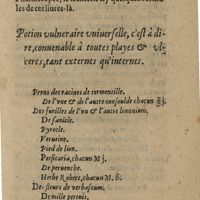 les de ces lieux-là.
Potion vulneraire vniuerselle, c'est à di-
re, conuenable à toutes playes & vl-
ceres, tant externes qu'internes.
Prens des racines de tormentille.
De l'vne & de l'autre consoulde chacun ℥j.
Des fueilles de l'vn & l'autre limonium,
De sanicle.
Pyrole.
Veruine.
Pied de lion.
Persicaria, chacun M j.
De peruenche.
Herbe Robert, chacun M. ß.
Des fleurs de verbascum.
De mille pertuis,